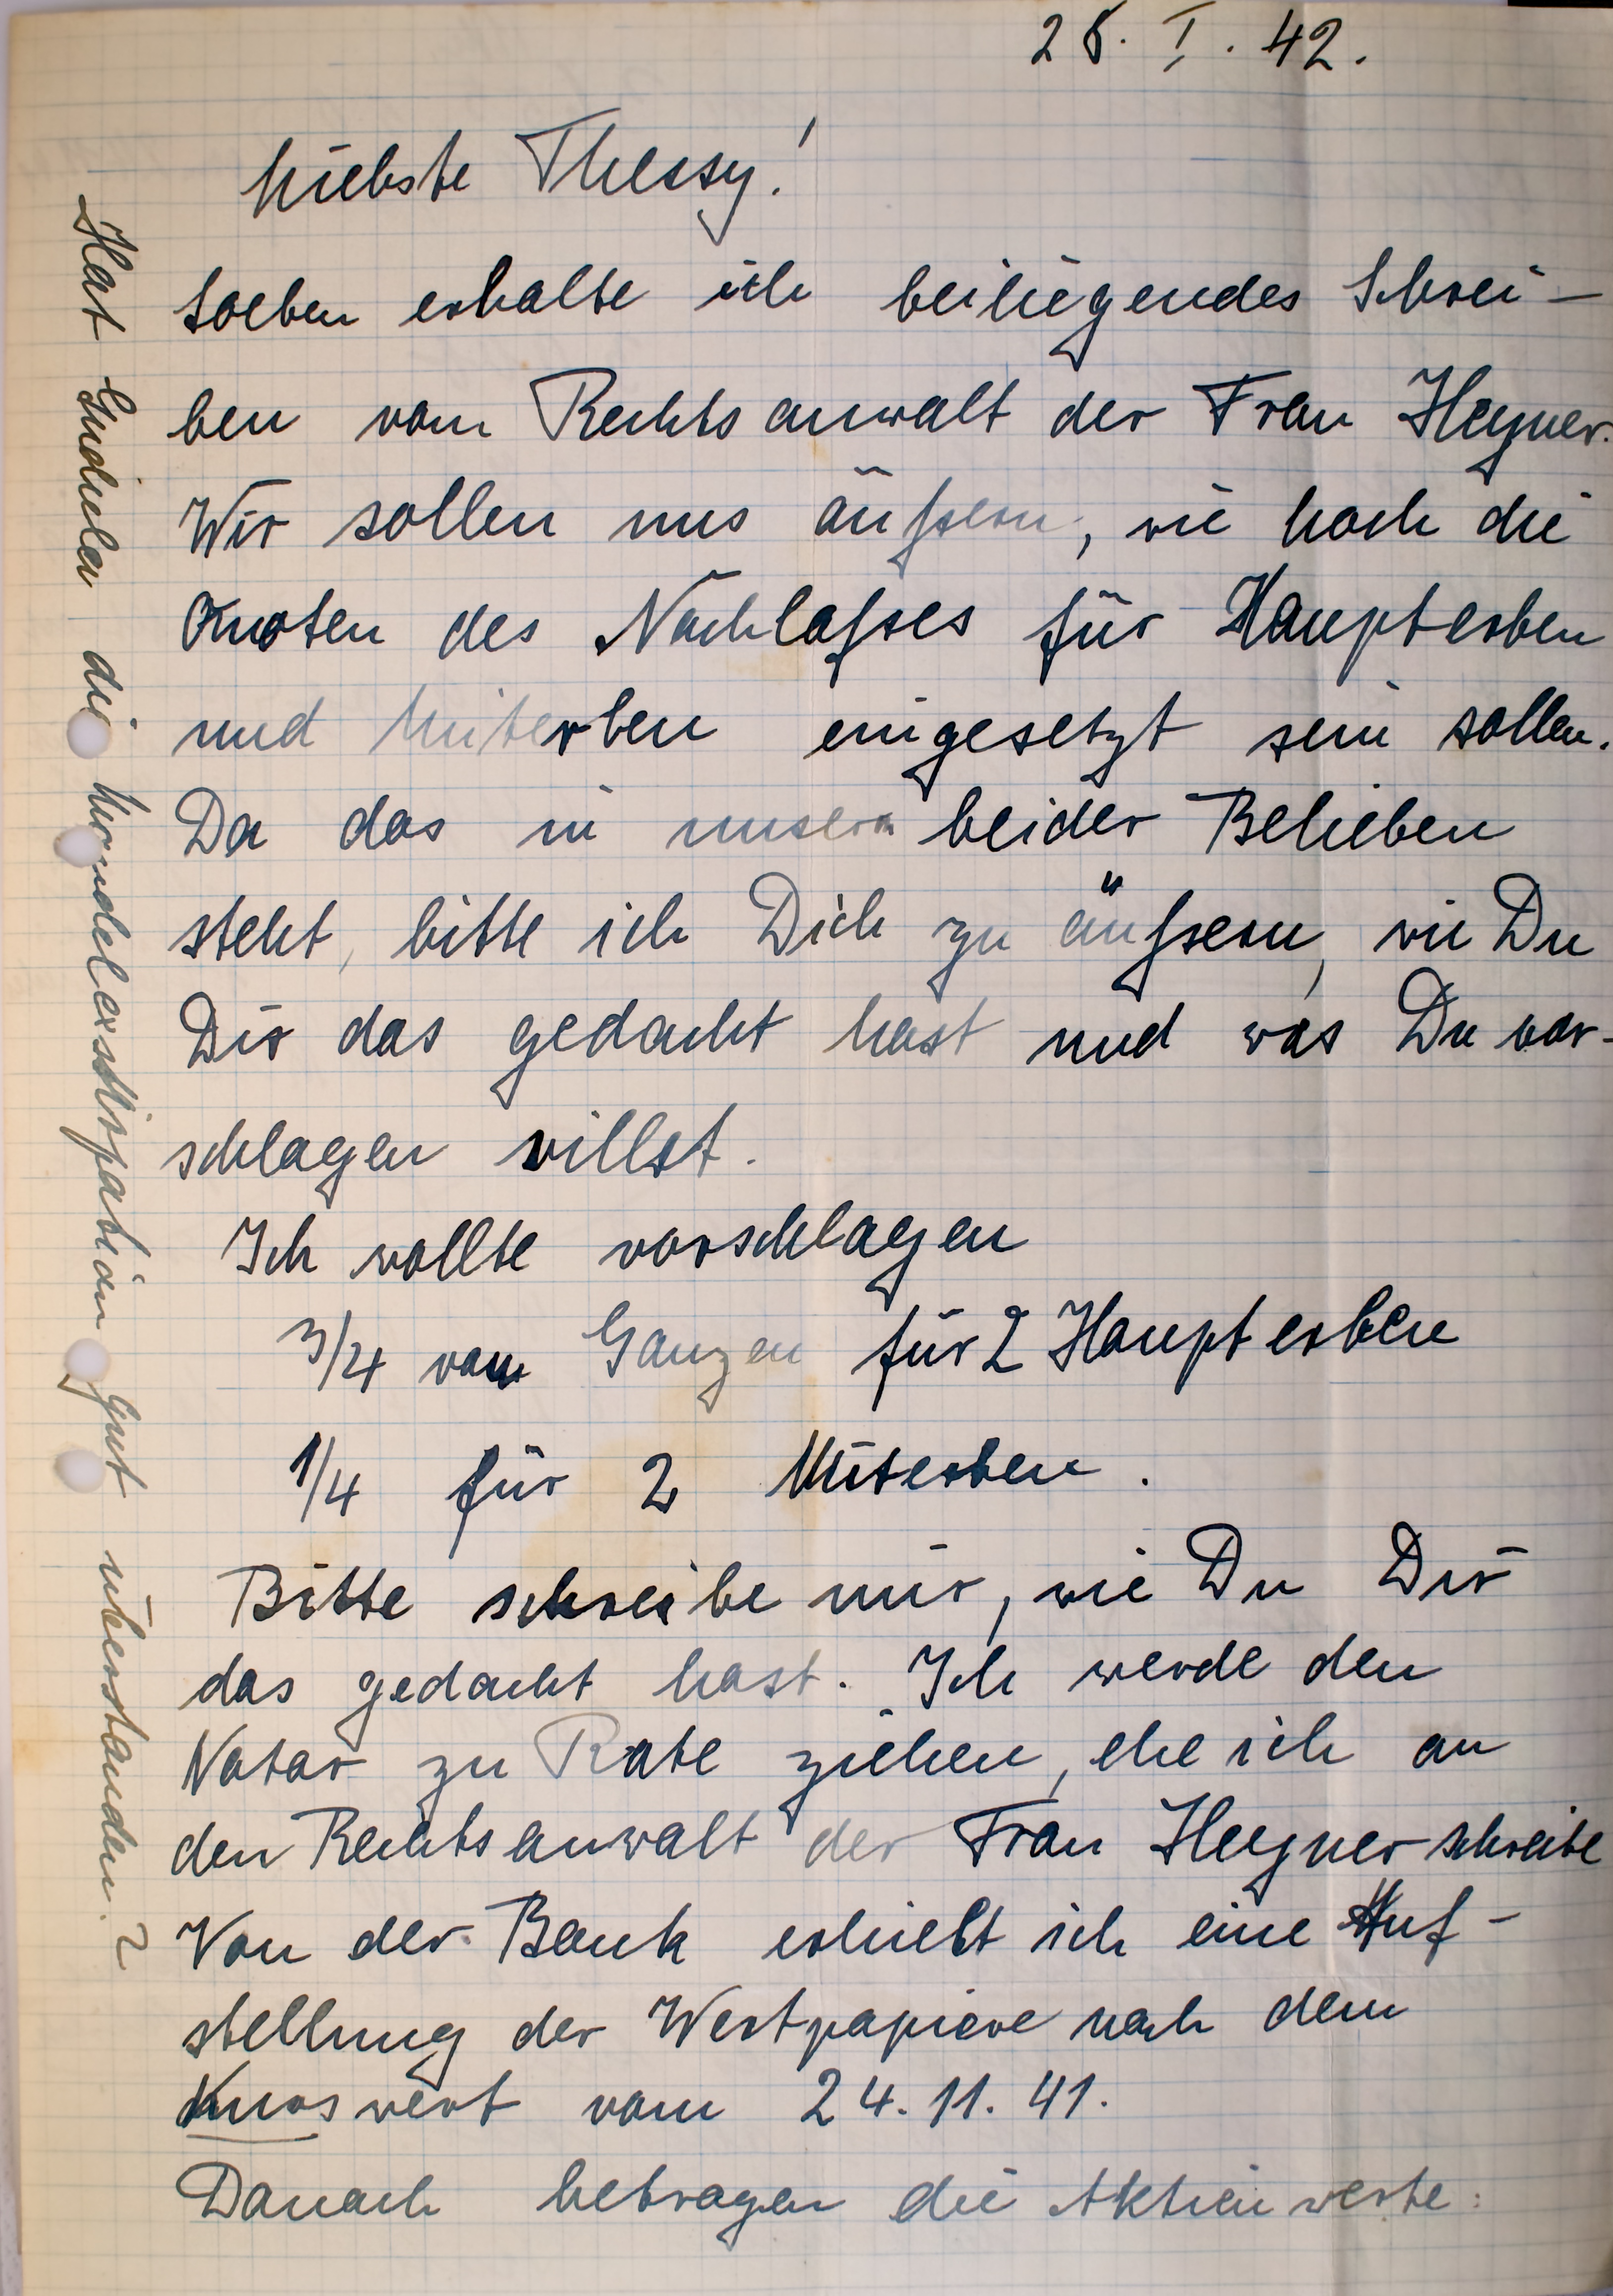 28. I. 42.
Liebste Thessy!
Soeben erhalte ich beiliegendes Schrei-
ben vom Rechtsanwalt der Frau Hegner.
Wir sollen uns äußern, wie hoch die
Quoten des Nachlaßes für Haupterben
und Miterben eingesetzt sein sollen.
Da das in unserm beider Belieben
steht, bitte ich Dich zu äußern, wie Du
Dir das gedacht hast und was Du vor-
schlagen willst.
Ich wollte vorschlagen
3/4 vom Ganzen für 2 Haupterben
1/4 für 2 Miterben.
Bitte schreibe mir, wie Du Dir
das gedacht hast. Ich werde den
Notar zu Rate ziehen, ehe ich an
den Rechtsanwalt der Frau Hegner schreibe
Von der Bank erhielt ich eine Auf-
stellung der Wertpapiere nach dem
Kurswert vom 24.11.41.
Danach betragen die Aktienwerte:
Hat Gudula die Mandelexstirpation gut überstanden?